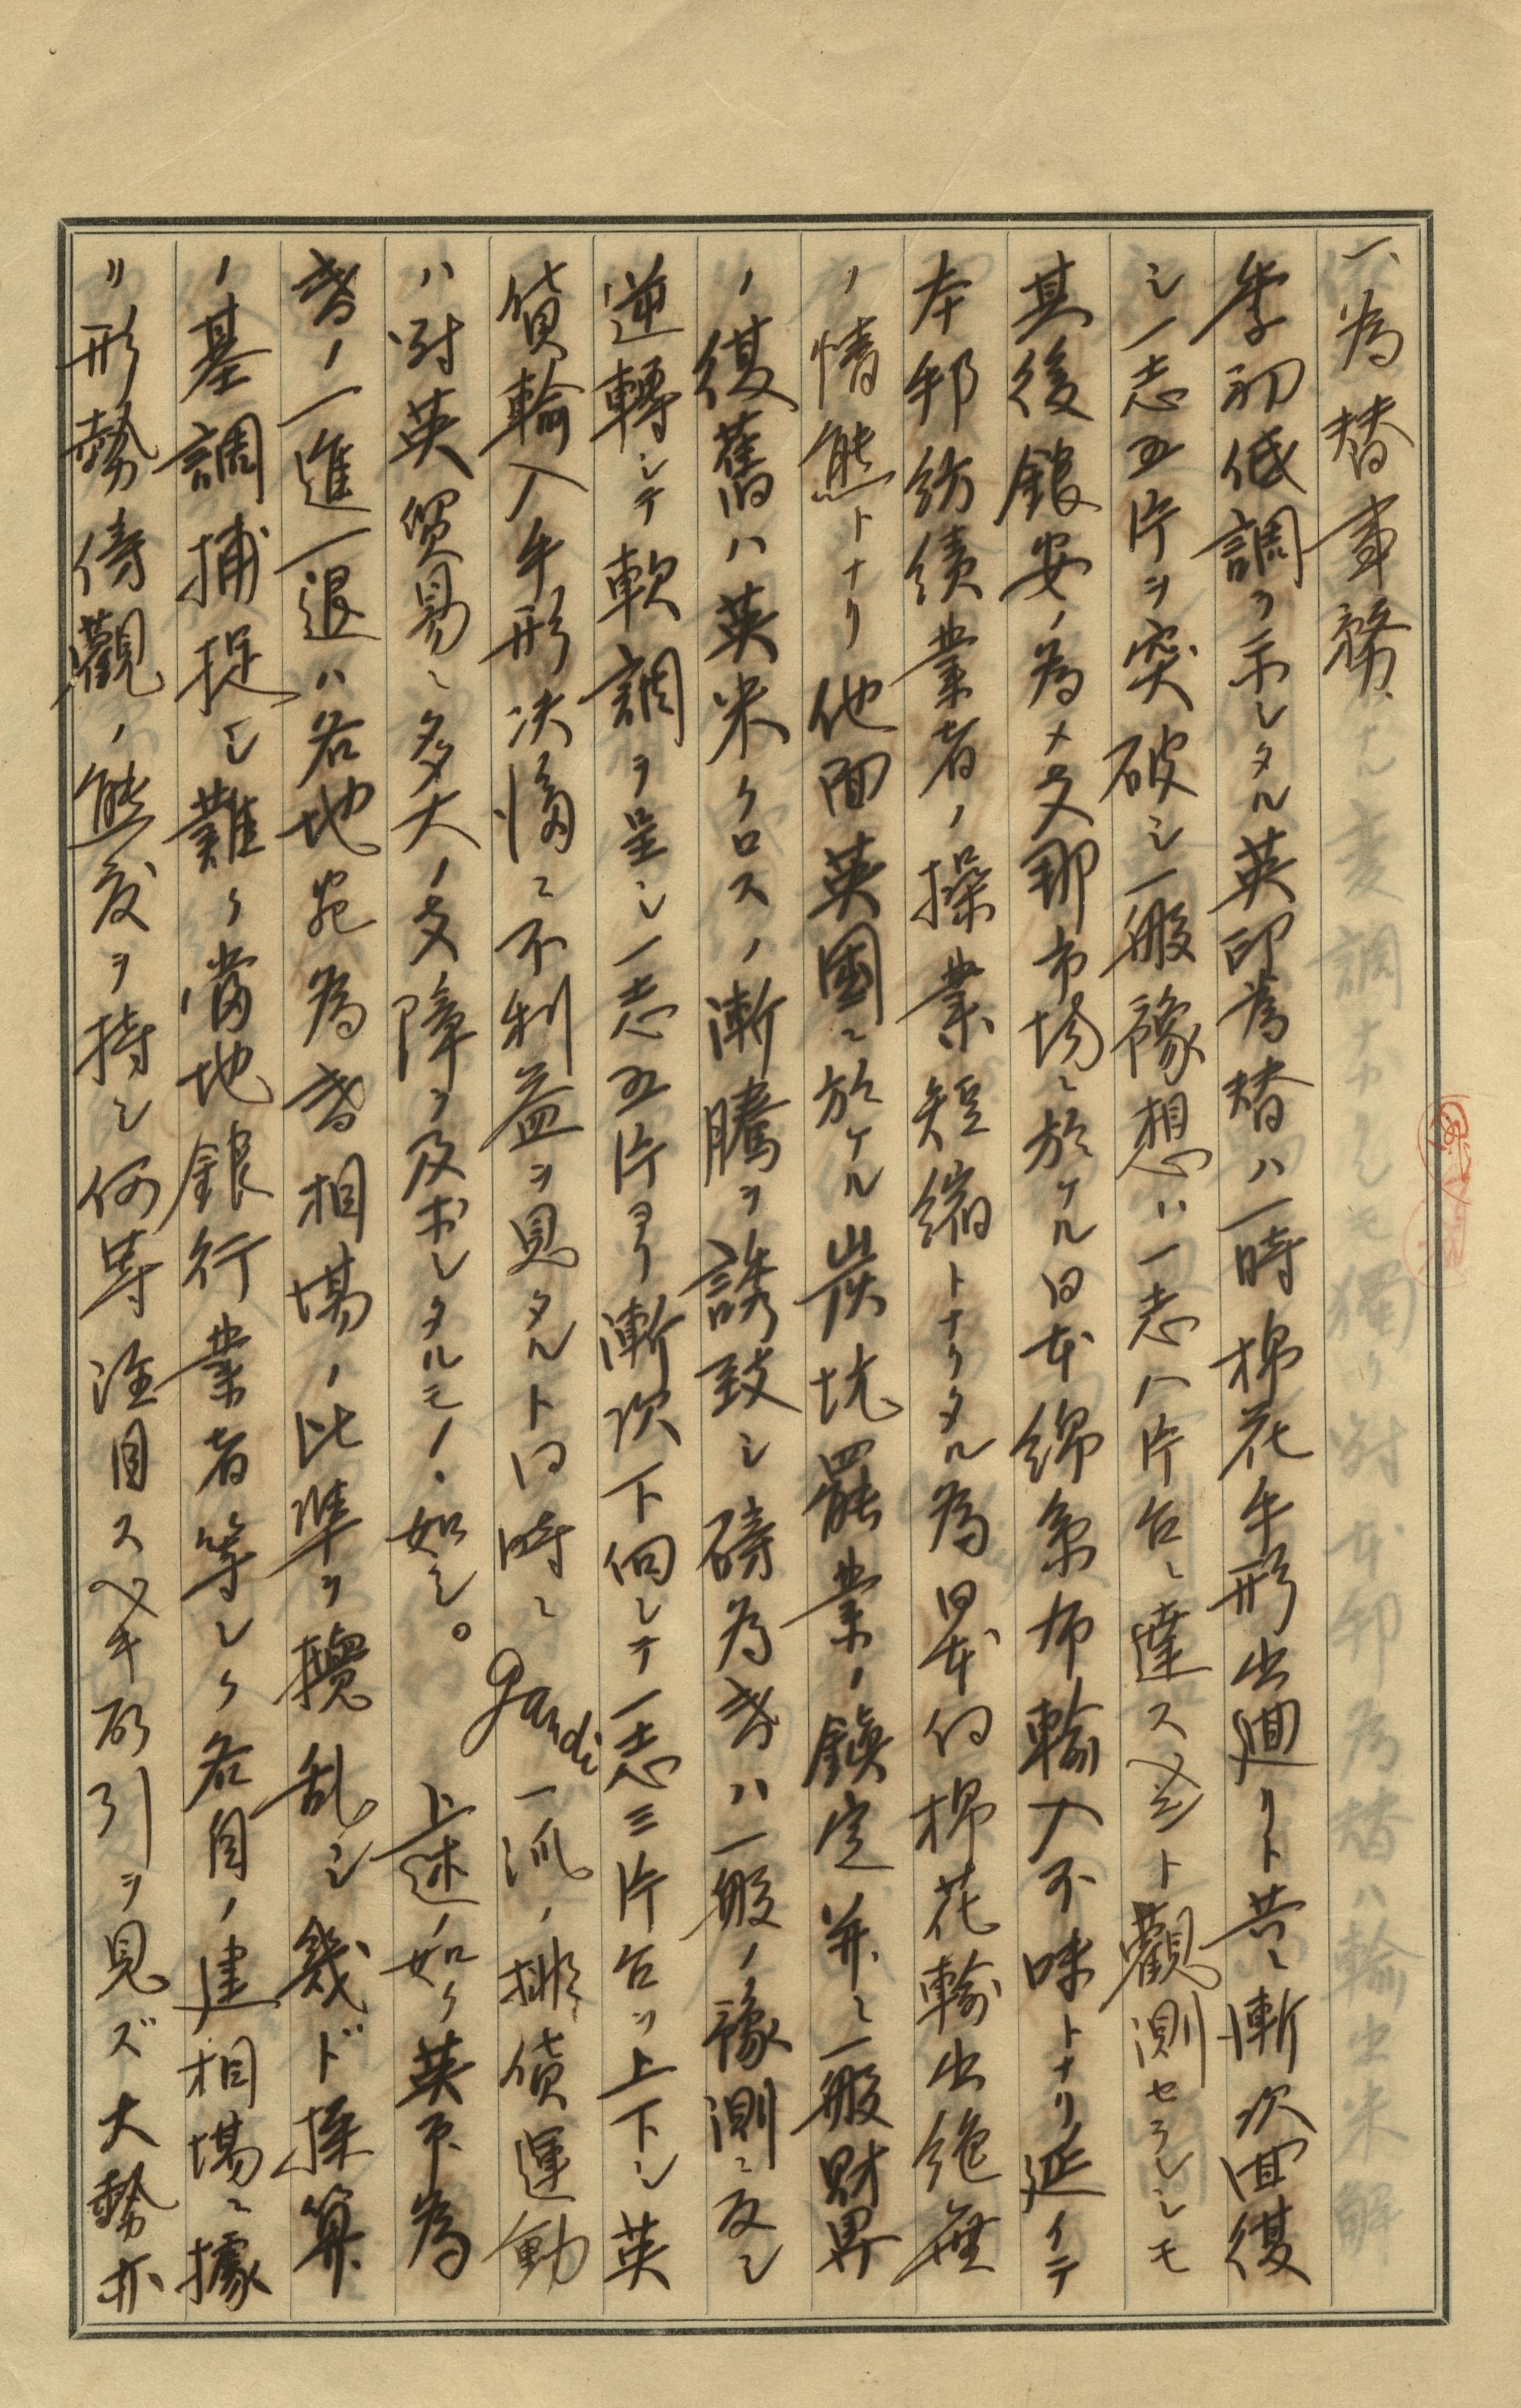 一、為替事務、
年初低調ヲ示シタル英印為替ハ一時棉花手形出廻リト共ニ漸次回復
シ一志五片ヲ突破シ一般豫想ハ一志八片台ニ達スベシト觀測セラレシモ
其後銀安ノ為メ支那市場ニ於ケル日本綿糸布輸入不味トナリ延イテ
本邦紡績業者ノ操業短縮トナリタル為日本向棉花輸出絶無
ノ情態トナリ他面英國ニ於ケル炭坑罷業ノ鎮定並ニ一般財界
ノ復舊ハ英米クロスノ漸騰ヲ誘致シ磅為替ハ一般ノ豫測ニ反シ
逆轉シテ軟調ヲ呈シ一志五片ヨリ漸次下向シテ一志三片台ヲ上下シ英
貨輸入手形決済ニ不利益ヲ見タルト同時ニ Gandi 一派ノ排貨運動
ハ対英貿易ニ多大ノ支障ヲ及ボシタルモノヽ如シ。 上述ノ如ク英印為
替ノ一進一退ハ各地宛為替相場ノ比準ヲ攪乱シ幾ド採算
ノ基調捕捉シ難ク當地銀行業者等シク各自ノ建相場ニ據
リ形勢傍觀ノ態度ヲ持シ何等注目スベキ取引ヲ見ズ大勢亦